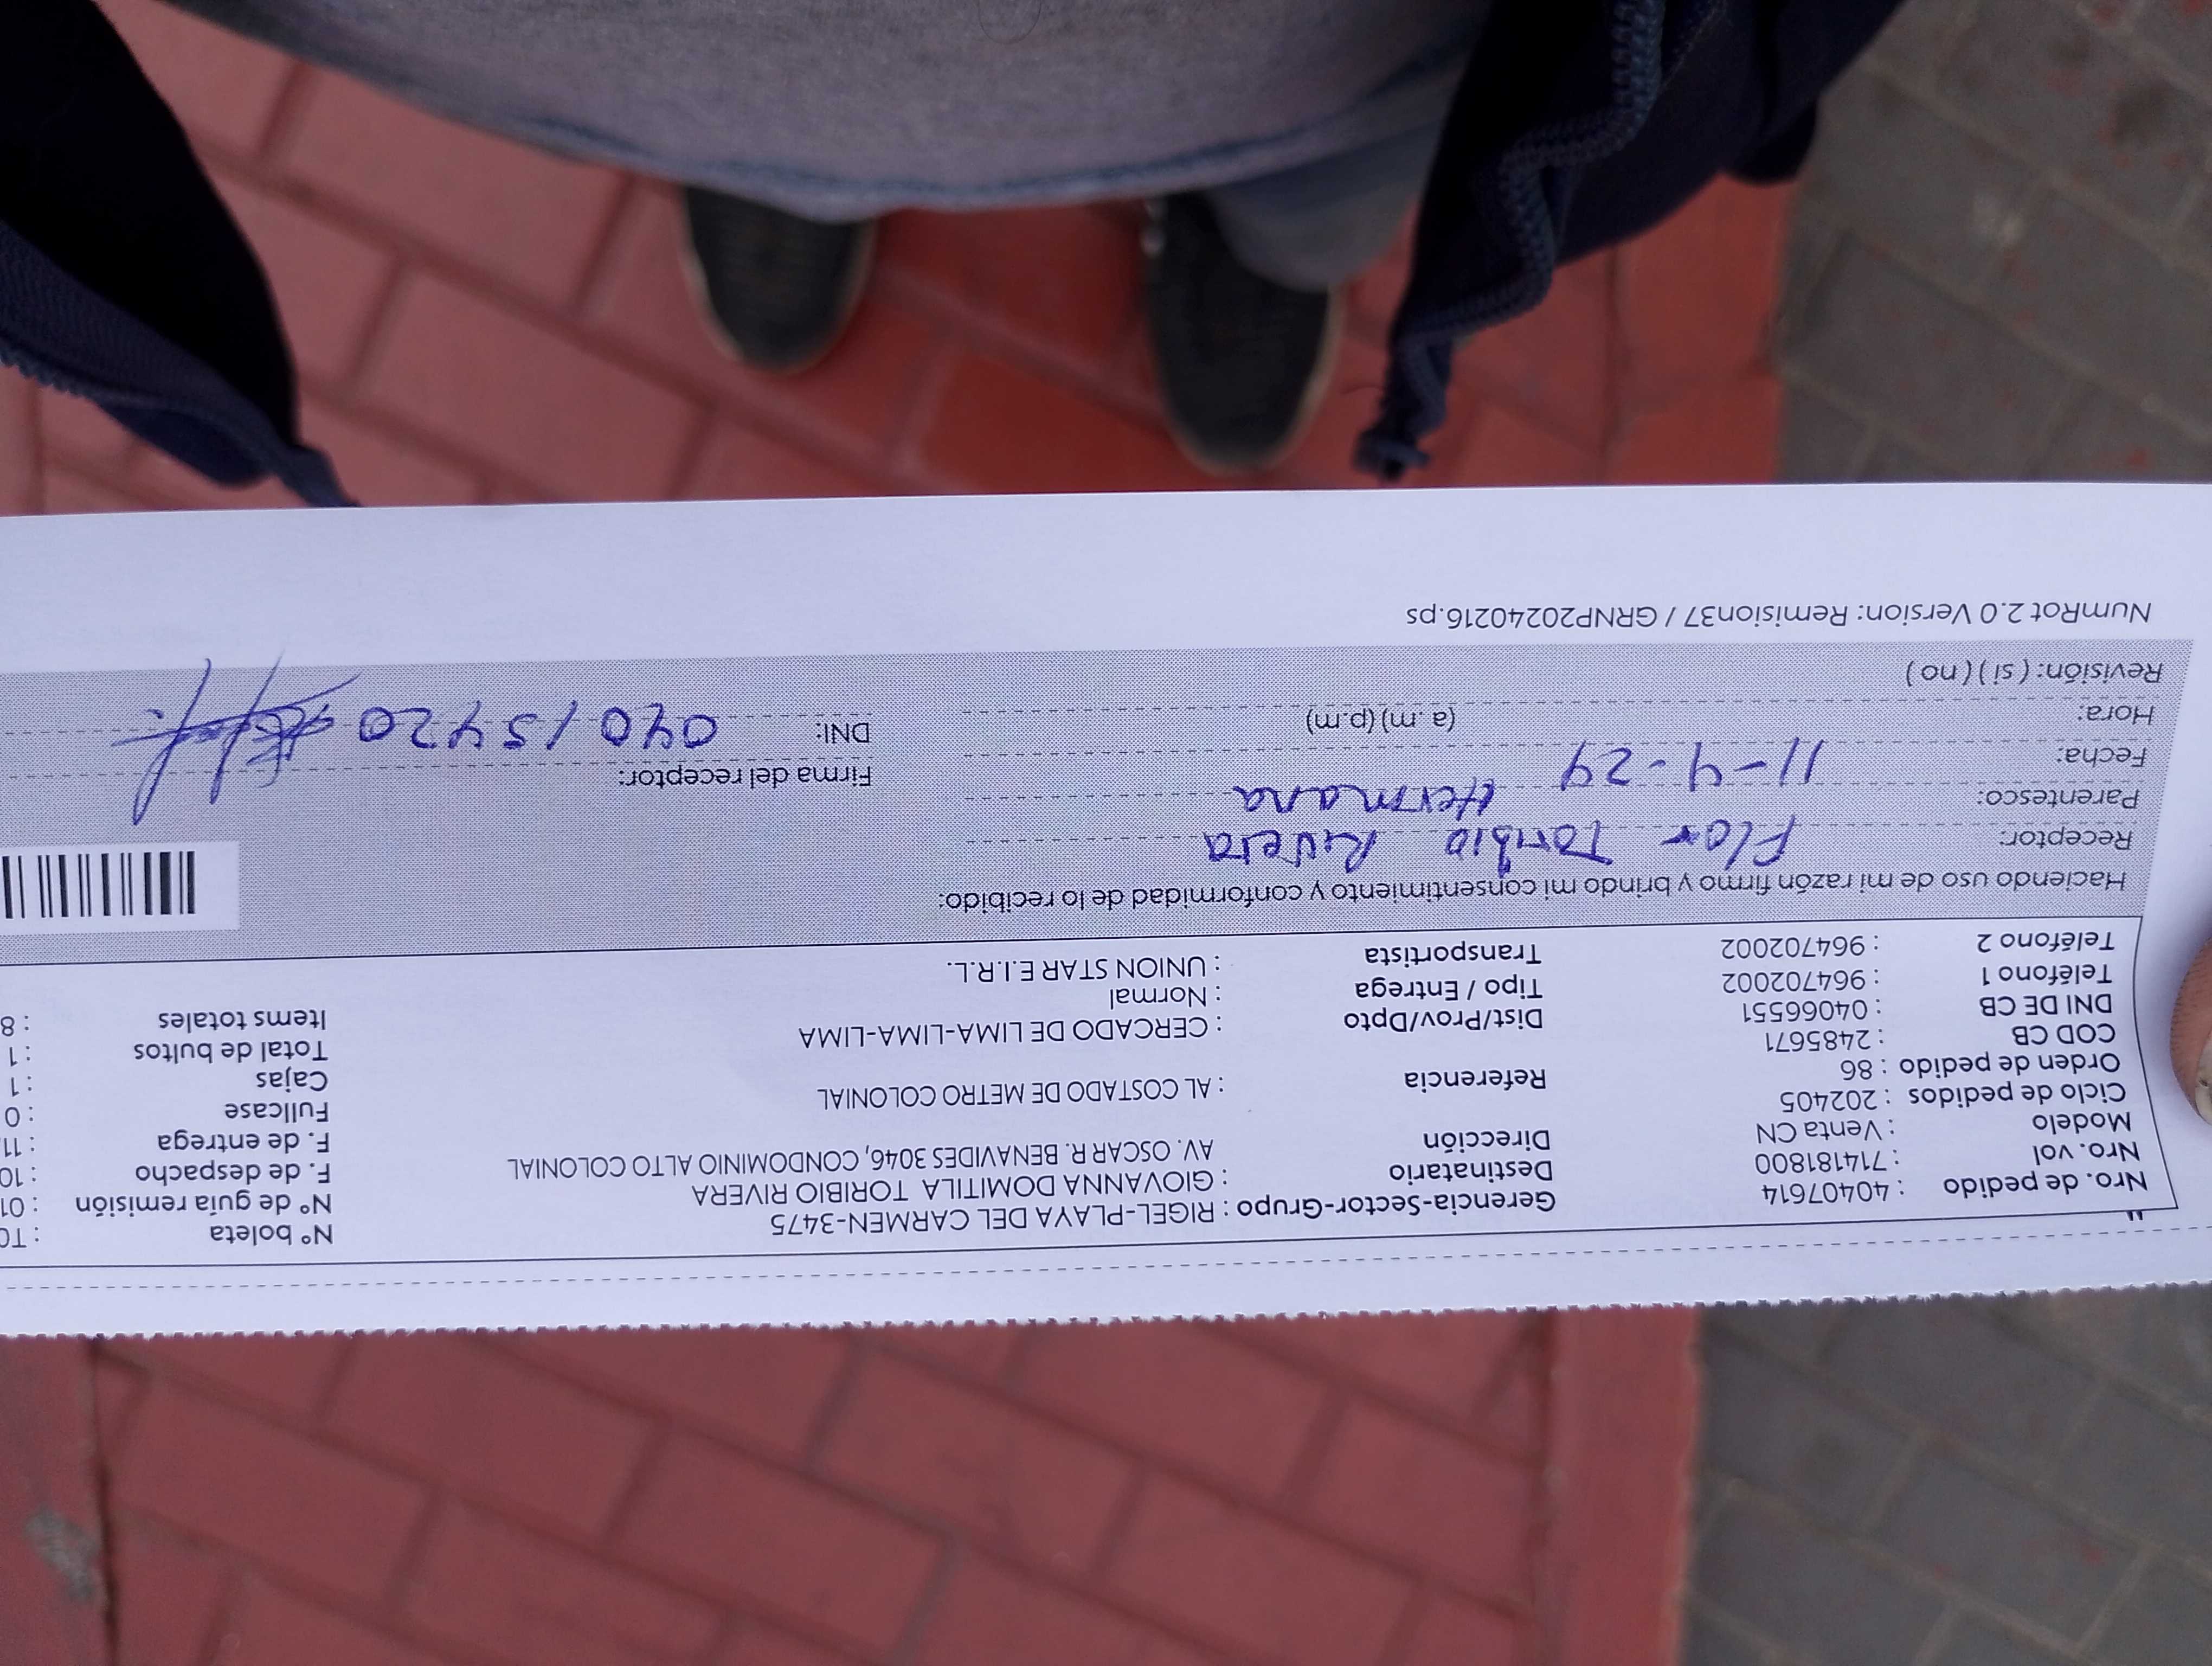 Nro. de pedido : 40407614 Gerencia-Sector-Grupo : RIGEL-PLAYA DEL CARMEN-3475 N° boleta : T0
Nro. vol : 714181800 Destinatario : GIOVANNA DOMITILA TORIBIO RIVERA N° de guía remisión : 01
Modelo : Venta CN Dirección AV. OSCAR R. BENAVIDES 3046, CONDOMINIO ALTO COLONIAL F. de despacho : 10
Ciclo de pedidos : 202405 F. de entrega : 11
Orden de pedido : 86 Referencia : AL COSTADO DE METRO COLONIAL Fullcase : 0
COD CB : 2485671 Cajas : 1
DNI DE CB : 04066551 Dist/Prov/Dpto : CERCADO DE LIMA-LIMA-LIMA Total de bultos : 1
Teléfono 1 : 964702002 Tipo / Entrega : Normal Items totales : 8
Teléfono 2 : 964702002 Transportista : UNION STAR E.I.R.L.
Haciendo uso de mi razón firmo y brindo mi consentimiento y conformidad de lo recibido:
Receptor: Flor Toribio Rivera
Parentesco: Hermana
Fecha: 11-4-24 Firma del receptor:
Hora: (a.m) (p.m) DNI: 04015420
Revisión: ( si ) ( no )
NumRot 2.0 Version: Remision37 / GRNP20240216.ps